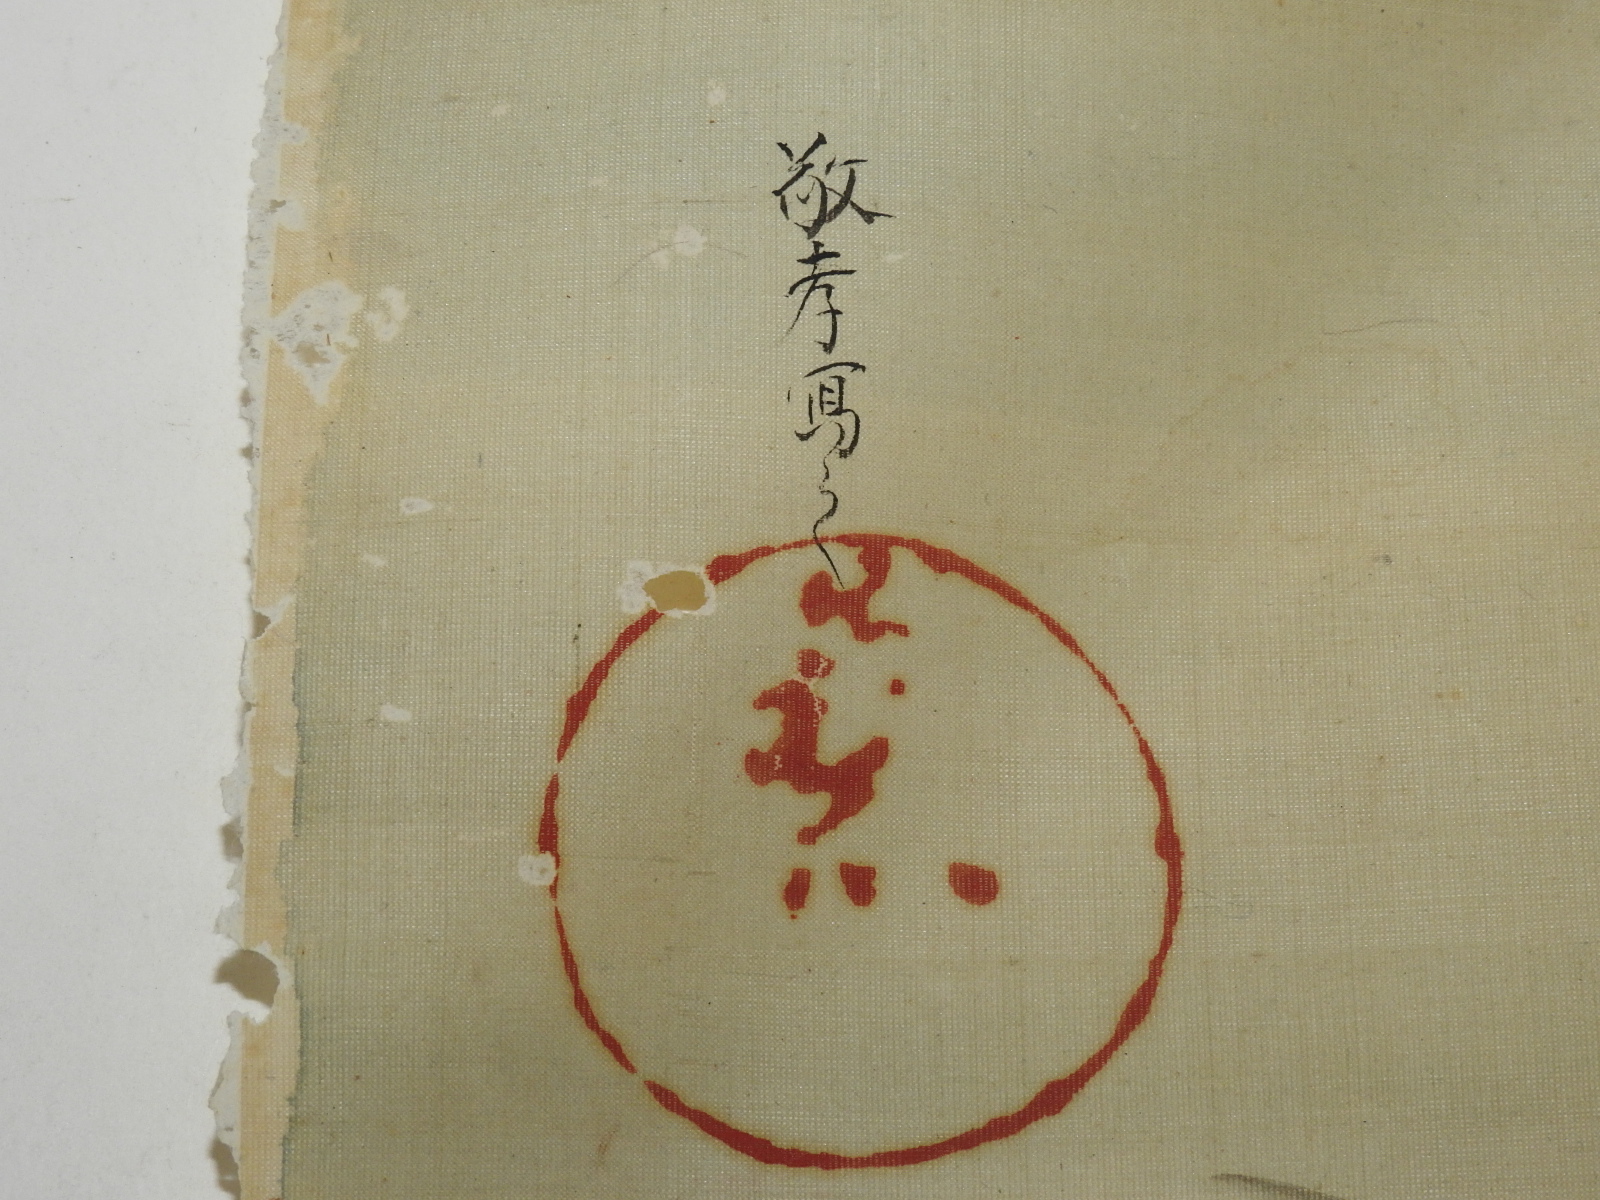 敬孝寫之